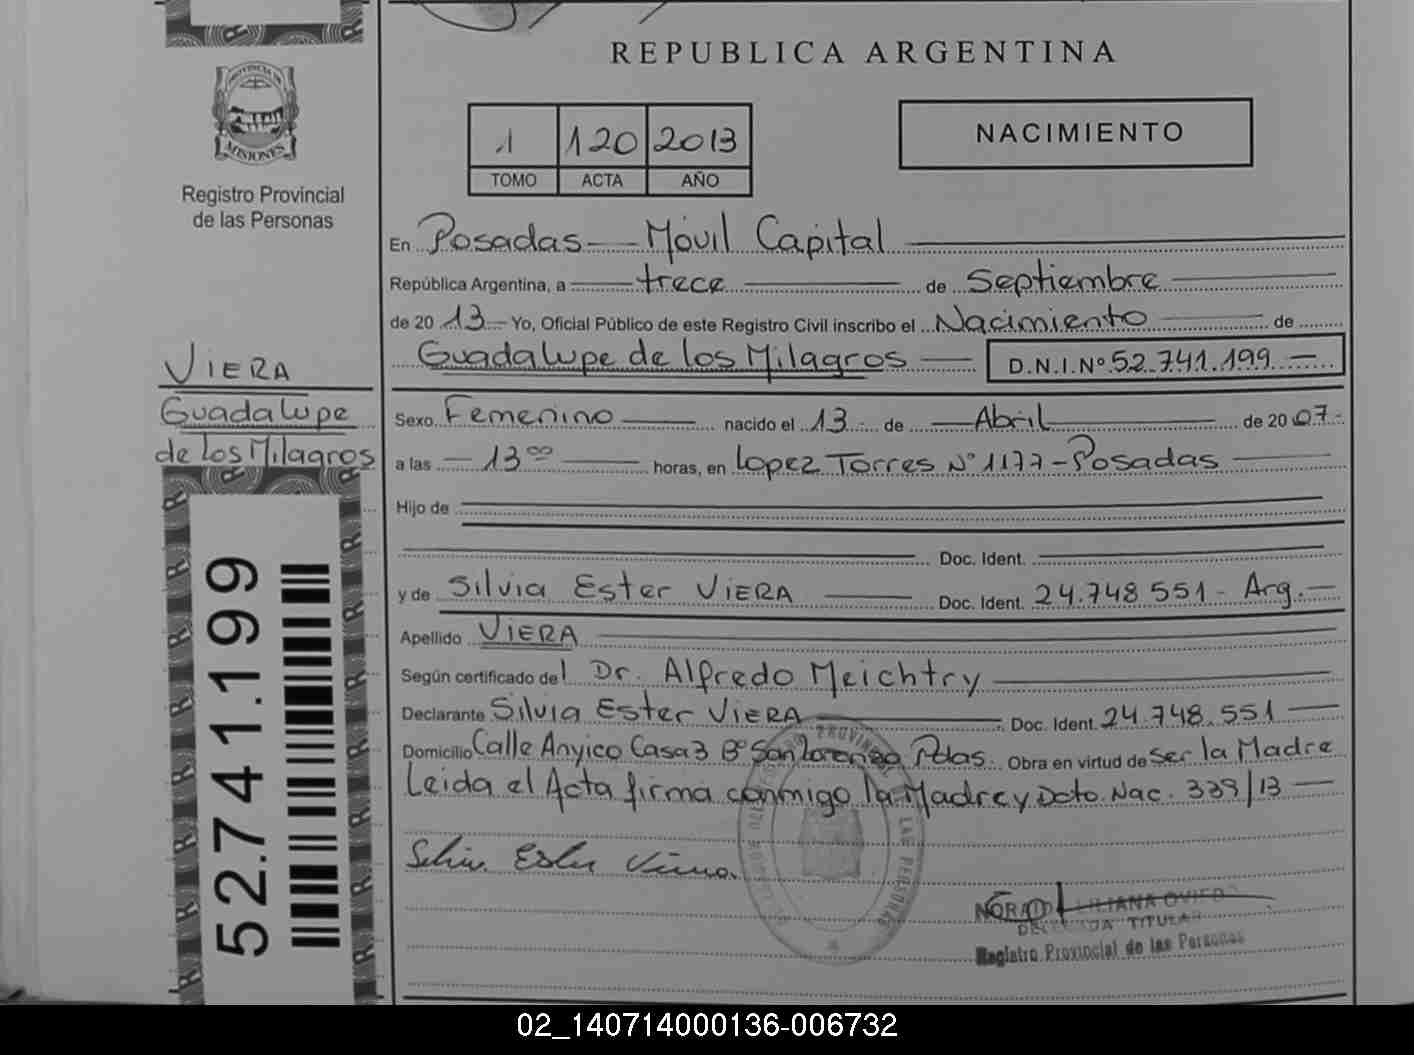 REPUBLICA ARGENTINA
PROVINCIA DE
MISIONES
Registro Provincial
de las Personas
1 120 2013
TOMO ACTA AÑO
NACIMIENTO
En Posadas — Móvil Capital
República Argentina, a trece de Septiembre
de 2013 Yo, Oficial Público de este Registro Civil inscribo el Nacimiento de
Guadalupe de los Milagros D.N.I.Nº 52.741.199
VIERA
Guadalupe
de los Milagros
52.741.199
Sexo Femenino nacido el 13 de Abril de 2007
a las 13 00 horas, en Lopez Torres Nº 1177 - Posadas
Hijo de
Doc. Ident.
y de Silvia Ester VIERA Doc. Ident. 24.748.551 - Arg.
Apellido VIERA
Según certificado del Dr. Alfredo Meichtry
Declarante Silvia Ester VIERA Doc. Ident. 24.748.551
Domicilio Calle Anyico Casa 3 Bº San Lorenzo Pdas. Obra en virtud de ser la Madre
Leida el Acta firma conmigo la Madre y Dcto. Nac. 339/13
Silvia Ester Viera.
LILIANA OVIEDO
DELEGADA TITULAR
Registro Provincial de las Personas
02_140714000136-006732